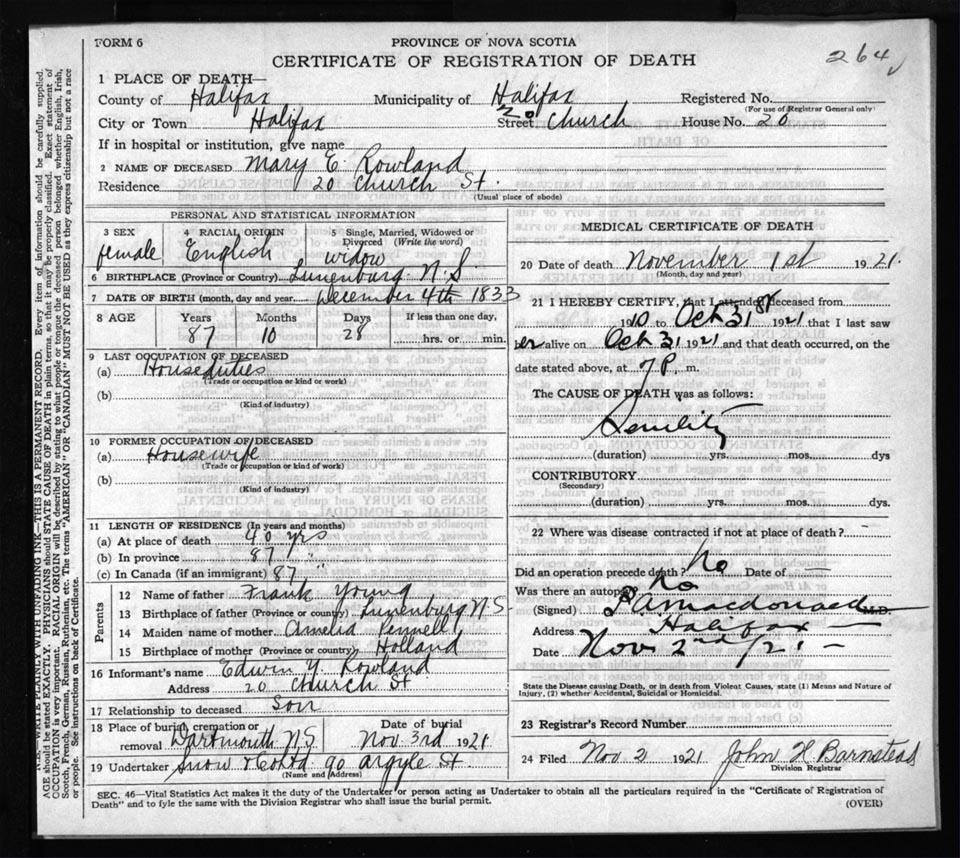 FORM 6
PROVINCE OF NOVA SCOTIA
CERTIFICATE OF REGISTRATION OF DEATH
264
1 PLACE OF DEATH—
County of Halifax Municipality of Halifax Registered No.
(For use of Registrar General only)
City or Town Halifax 20 Street Church House No. 20
If in hospital or institution, give name
2 NAME OF DECEASED Mary E. Rowland
Residence 20 Church St.
(Usual place of abode)
PERSONAL AND STATISTICAL INFORMATION
3 SEX female
4 RACIAL ORIGIN English
5 Single, Married, Widowed or Divorced (Write the word) widow
6 BIRTHPLACE (Province or Country) Lunenburg N.S
7 DATE OF BIRTH (month, day and year December 4th 1833
8 AGE Years Months Days If less than one day,
87 10 28 hrs. or min.
9 LAST OCCUPATION OF DECEASED
(a) Houseduties
(Trade or occupation or kind or work)
(b)
(Kind of industry)
10 FORMER OCCUPATION OF DECEASED
(a) Housewife
(Trade or occupation or kind or work)
(b)
(Kind of industry)
11 LENGTH OF RESIDENCE (In years and months)
(a) At place of death 40 yrs
(b) In province 87 "
(c) In Canada (if an immigrant) 87
Parents
12 Name of father Frank Young
13 Birthplace of father (Province or country) Lunenburg N.S.
14 Maiden name of mother Amelia Pennell
15 Birthplace of mother (Province or Country) Holland
16 Informant's name Edwin Y. Rowland
Address 20 Church St
17 Relationship to deceased Son
18 Place of burial, cremation or removal Dartmouth N.S.
Date of burial Nov 3rd 1921
19 Undertaker Snow & Co Ltd 90 Argyle St.
(Name and Address)
MEDICAL CERTIFICATE OF DEATH
20 Date of death November 1st 1921.
(Month, day and year)
21 I HEREBY CERTIFY, that I attended deceased from
1910 to Oct 31st 1921 that I last saw
her alive on Oct 31 1921 and that death occurred, on the
date stated above, at 7 P. m.
The CAUSE OF DEATH was as follows:
Senility
(duration) yrs. mos. dys
CONTRIBUTORY
(Secondary)
(duration) yrs. mos. dys.
22 Where was disease contracted if not at place of death?
Did an operation precede death? No Date of
Was there an autopsy No
(Signed) Macdonald M.D.
Address Halifax
Date Nov 2nd/21.
State the Disease causing Death, or in death from Violent Causes, state (1) Means and Nature of
Injury, (2) whether Accidental, Suicidal or Homicidal.
23 Registrar's Record Number
24 Filed Nov 2 1921 John H Barnstead
Division Registrar
SEC. 46—Vital Statistics Act makes it the duty of the Undertaker or person acting as Undertaker to obtain all the particulars required in the "Certificate of Registration of
Death" and to fyle the same with the Division Registrar who shall issue the burial permit.
(OVER)
N.B.—WRITE PLAINLY WITH UNFADING INK—THIS IS A PERMANENT RECORD. Every item of information should be carefully supplied.
AGE should be stated EXACTLY. PHYSICIANS should STATE CAUSE OF DEATH in plain terms, so that it may be properly classified. Exact statement of
OCCUPATION is very important. RACIAL ORIGIN will be described by stating to what people or tongue the deceased person belonged, whether English, Irish,
Scotch, French, German, Russian, Ruthenian, etc. The terms "AMERICAN" OR "CANADIAN" MUST NOT BE USED as they express citizenship but not a race
or people. See instructions on back of Certificate.